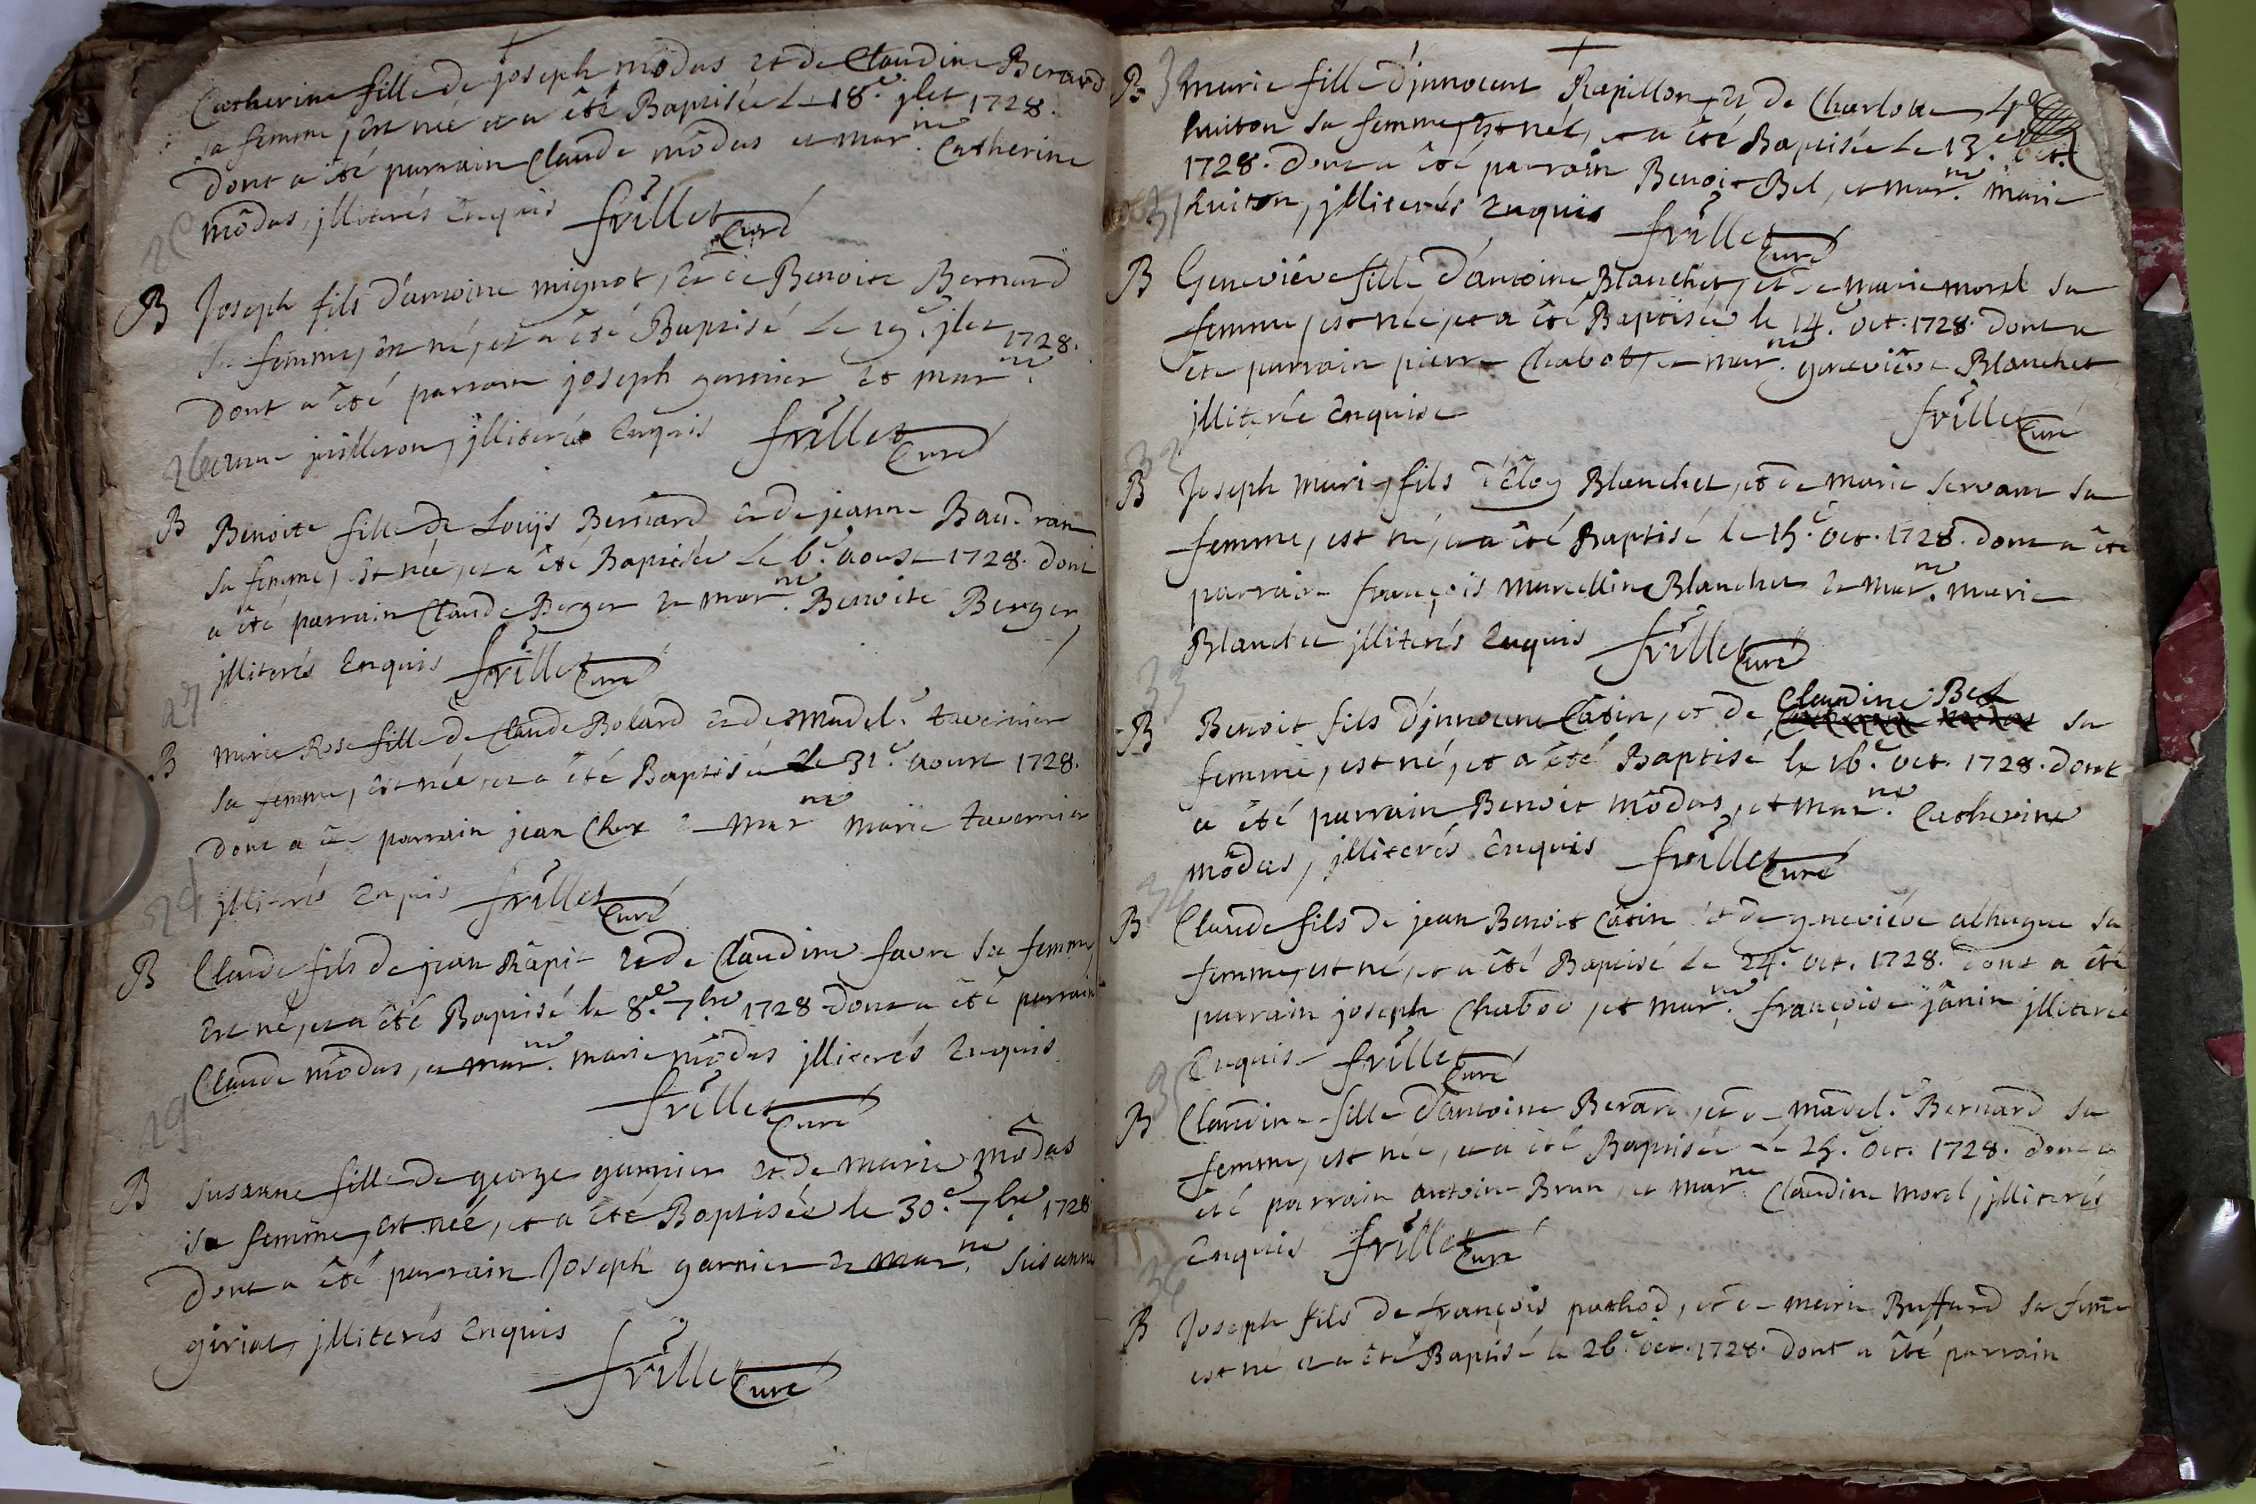 Catherine fille de joseph môdas et de Claudine Berard
sa femme est née et a été Baptisée le 18.e jlet 1728.
dont a été parrain Claude môdas et mar.ne Catherine
môdas, jlliterés Enquis frillet Curé
B Joseph fils d'antoine mignot, et de Benoite Bernard
sa femme, est né, et a êté Baptisé le 19.e jlet 1728.
dont a êté parrain joseph garnier et mar.ne
26 juilleron, jlliterés Enquis frillet Curé
B Benoite fille de Louijs Bernard et de jeanne Baudran
sa femme, est née, et a êté Baptisée le 6.e aoust 1728. dont
a êté parrain Claude Berger et mar.ne Benoite Berger
jlliterés Enquis frillet Curé
27
B Marie Rose fille de Claude Bolard et de madel.e tavernier
sa femme, est née, et a êté Baptisée le 31.e aoust 1728.
dont a été parrain jean et mar.ne marie tavernier
jlliterés Enquis frillet Curé
B Claude fils de jean Râpit et de Claudine favre sa femme,
Est né, et a êté Baptisé le 8.e 7.bre 1728 dont a êté parrain
Claude môdas, et mar.ne marie môdas jlliterés Enquis
frillet Curé
29
B Susanne fille de george garnier et de marie môdas
sa femme, est née, et a êté Baptisée le 30.e 7.bre 1728
dont a êté parrain Joseph garnier et mar.ne Susanne
giriat, jlliterés Enquis
frillet Curé
B marie fille d'jnnocent Rapillon, et de Charlotte
huiton sa femme, est née, et a êté Baptisée le 13.e oct.
1728. dont a êté parrain Benoit Bel, et mar.ne marie
31 huiton, jlliterés Enquis frillet Curé
B Geneviéve fille d'antoine Blanchet, et de marie morel sa
femme, est née, et a êté Baptisée le 14.e oct. 1728. dont a
êté parrain pierre Chabot, et mar.ne geneviêve Blanchet
jlliterée Enquise frillet Curé
32
B Joseph marie, fils d'Êloy Blanchet, et de marie servant sa
femme, est né, et a êté Baptisé le 15.e oct. 1728. dont a êté
parrain françois marcellin Blanchet et mar.ne marie
Blanchet jlliterés Enquis frillet Curé
33
Claudine Bel
B Benoit fils d'jnnocent Câtin, et de sa
femme, est né, et a êté Baptisé le 16.e oct. 1728. dont
a êté parrain Benoit môdas, et mar.ne Catherine
môdas, jlliterés Enquis frillet Curé
34
B Claude fils de jean Benoit Câtin et de geneviéve sa
femme, est né, et a êté Baptisé le 24.e oct. 1728. dont a êté
parrain joseph Chabot, et mar.ne françoise jânin jlliterés
Enquis frillet Curé
35
B Claudine fille d'antoine Berard, et de madel.e Bernard sa
femme, est née, et a êté Baptisée le 25.e oct. 1728. dont a
êté parrain antoine Brun, et mar.ne Claudine morel, jlliterés
Enquis frillet Curé
36
B Joseph fils de françois pathod, et de marie Buffard sa feme
est né et a êté Baptisé le 26.e oct. 1728. dont a êté parrain